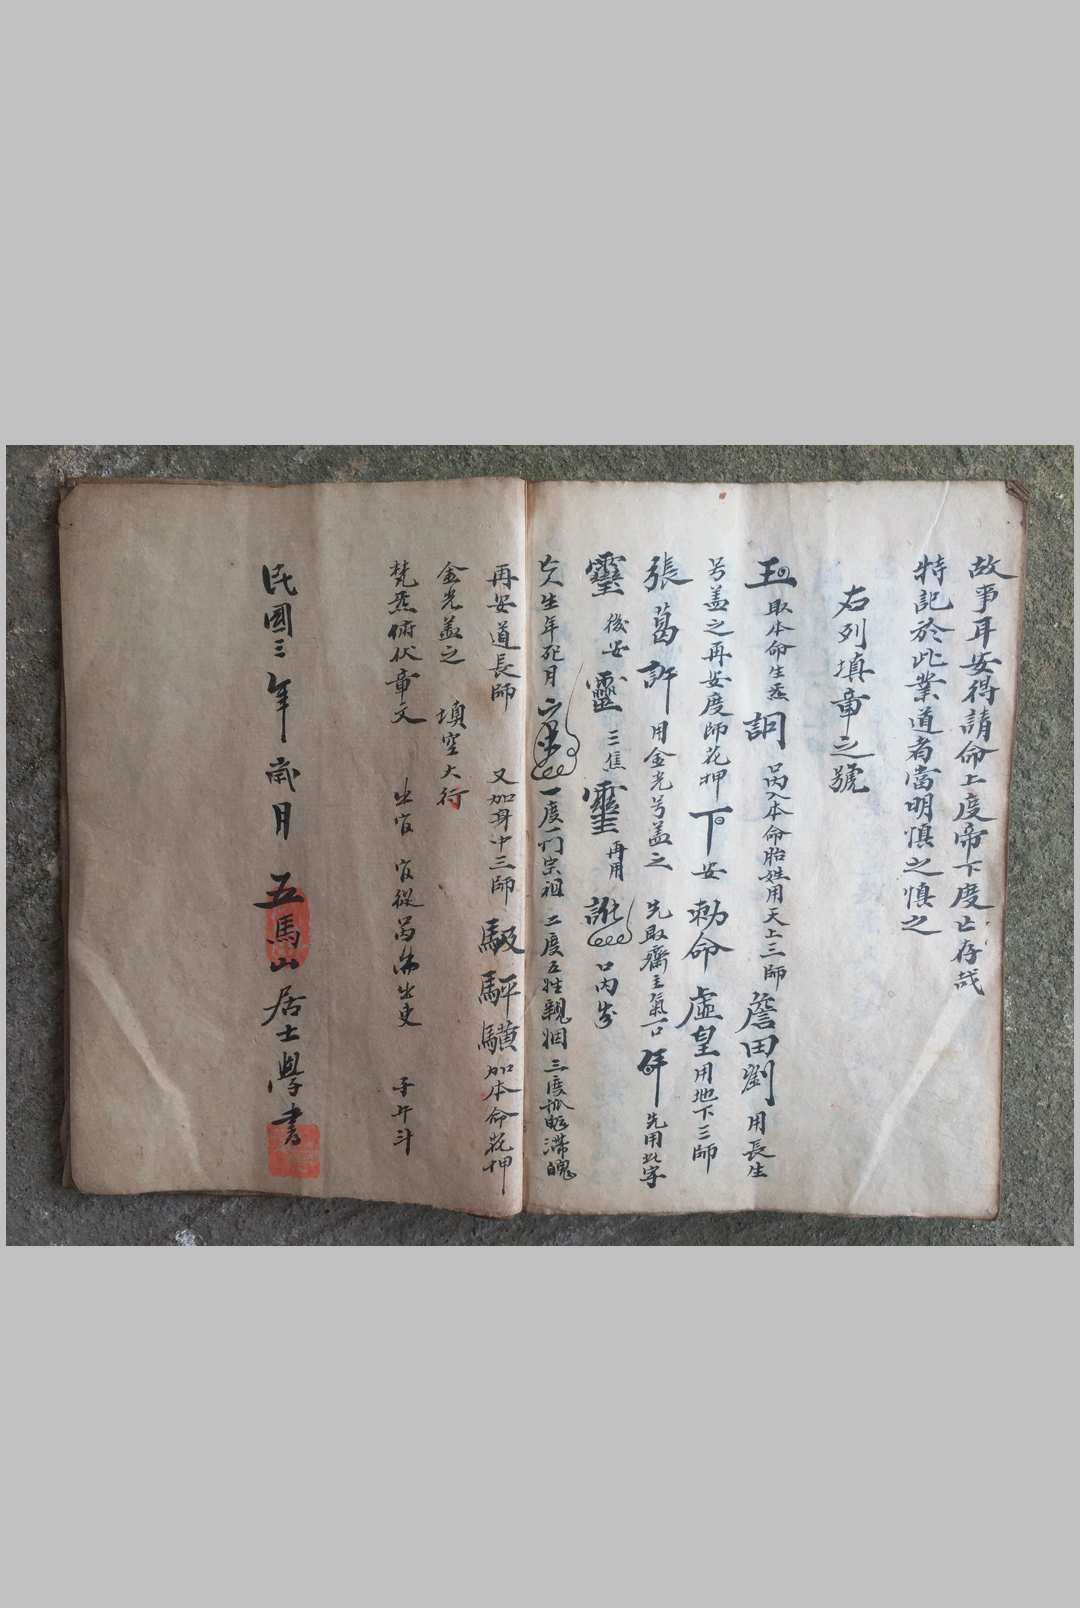 故事耳安得請命上度帝下度亡存哉
特記於此業道者當明慎之慎之
右列填章之號
取本命生炁 入本命胎姓用天上三師 詹田劉 用長生
号盖之再安度師花押 下 安 勅命 虛皇 用地下三師
張 葛 許 用金光号盖之 先取齋主氣一口 先用此字
靈 後安 靈 三焦 靈 再用 口內
亡人生年死月 一度一门宗祖 二度五姓親姻 三度 滯魄
再安道長師 又加身中三師 加本命花押
金光盖之 填空大行
梵炁俯伏章文 出官 官從 出吏 子午斗
民國三年 歲月 五馬山居士學書